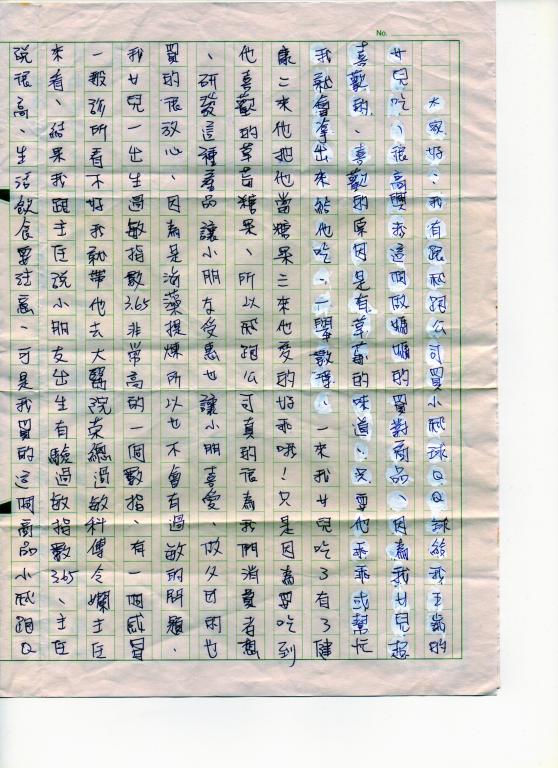 No.
大家好：我有跟飛跑公司買小飛球QQ球給我五歲的
女兒吃、很高興我這個做媽媽的買對商品、因為我女兒超
喜歡的、喜歡的原因是有草莓的味道、只要他乖乖或幫忙
我就會拿出來給他吃、一舉數得、一來我女兒吃了有了健
康二來他把他當糖果三來他愛的好乖哦！只是因為要吃到
他喜歡的草莓糖果、所以飛跑公司真的很為我們消費者想
、研發這種產品讓小朋友受惠也讓小朋喜愛、做父母的也
買的很放心、因為是海藻提煉所以也不會有過敏的問題、
我女兒一出生過敏指數3.65非常高的一個數指、有一個感冒
一般診所看不好我就帶他去大醫院榮總過敏科傅令嫻主任
來看、結果我跟主任說小朋友出生有驗過敏指數3.65、主任
說很高、生活飲食要注意、可是我買的這個商品小飛跑Q